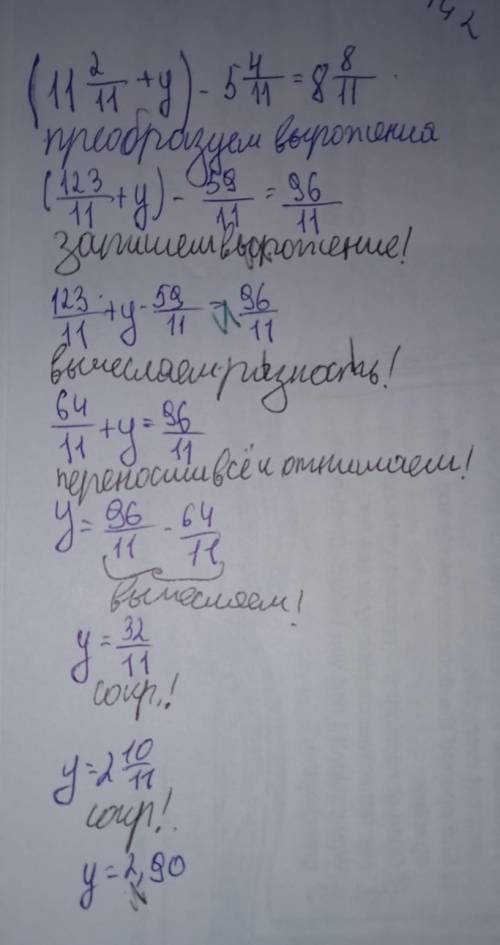 142
(11 2/11 + y) - 5 4/11 = 8 8/11
преобразуем выроженея
(123/11 + y) - 59/11 = 96/11
запишем вырожение!
123/11 + y - 59/11 = 96/11
вычесляем разность!
64/11 + y = 96/11
переносим всё и отнимаем!
y = 96/11 - 64/11
вычесляем!
y = 32/11
сокр.!
y = 2 10/11
сокр!
y = 2,90